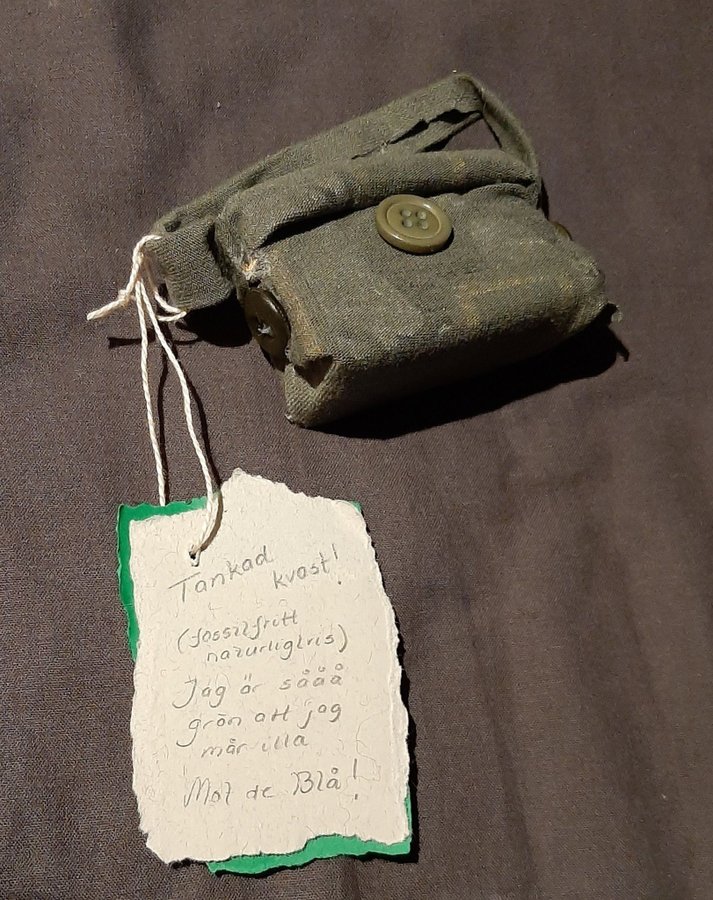 Tankad
kvast!
(fossilfritt
naturligtvis)
Jag är såää
grön att jag
mår illa
Mot de Blå!